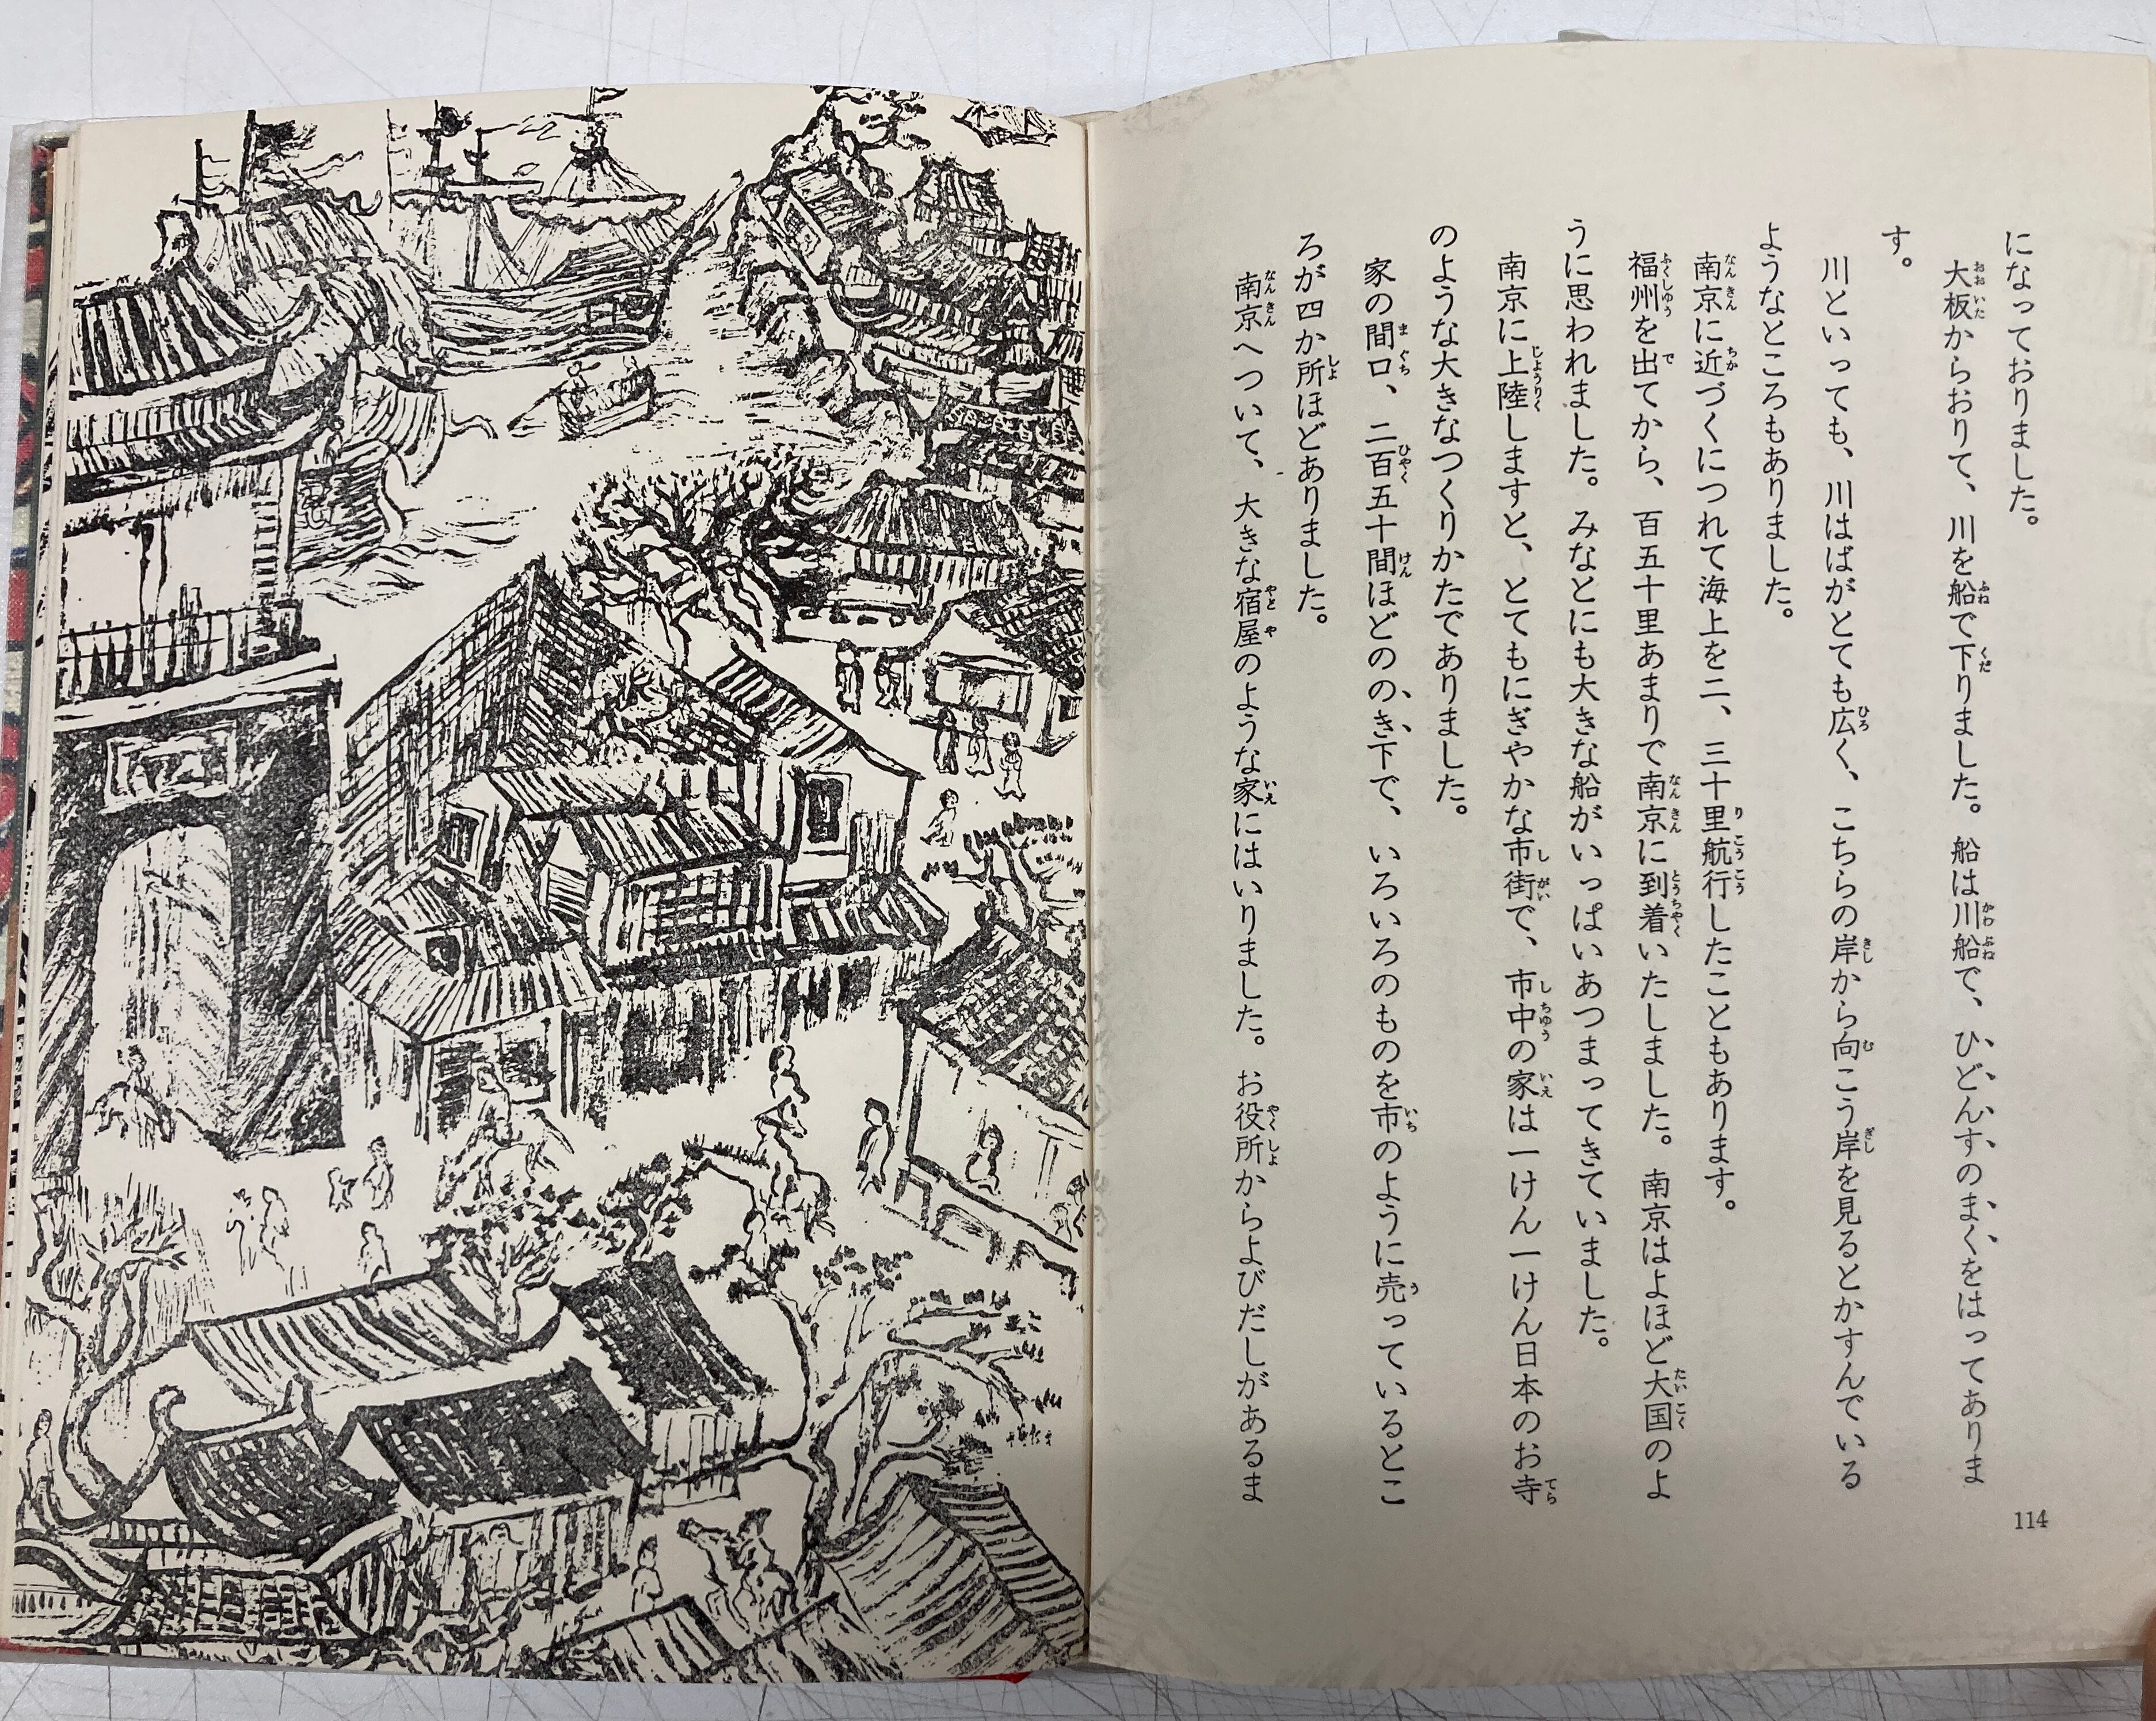 になっておりました。
大板からおりて、川を船で下りました。船は川船で、ひどんすのまくをはってありま
す。
川といっても、川はばがとても広く、こちらの岸から向こう岸を見るとかすんでいる
ようなところもありました。
南京に近づくにつれて海上を二、三十里航行したこともあります。
福州を出てから、百五十里あまりで南京に到着いたしました。南京はよほど大国のよ
うに思われました。みなとにも大きな船がいっぱいあつまってきていました。
南京に上陸しますと、とてもにぎやかな市街で、市中の家は一けん一けん日本のお寺
のような大きなつくりかたでありました。
家の間口、二百五十間ほどののき下で、いろいろのものを市のように売っているとこ
ろが四か所ほどありました。
南京へついて、大きな宿屋のような家にはいりました。お役所からよびだしがあるま
114